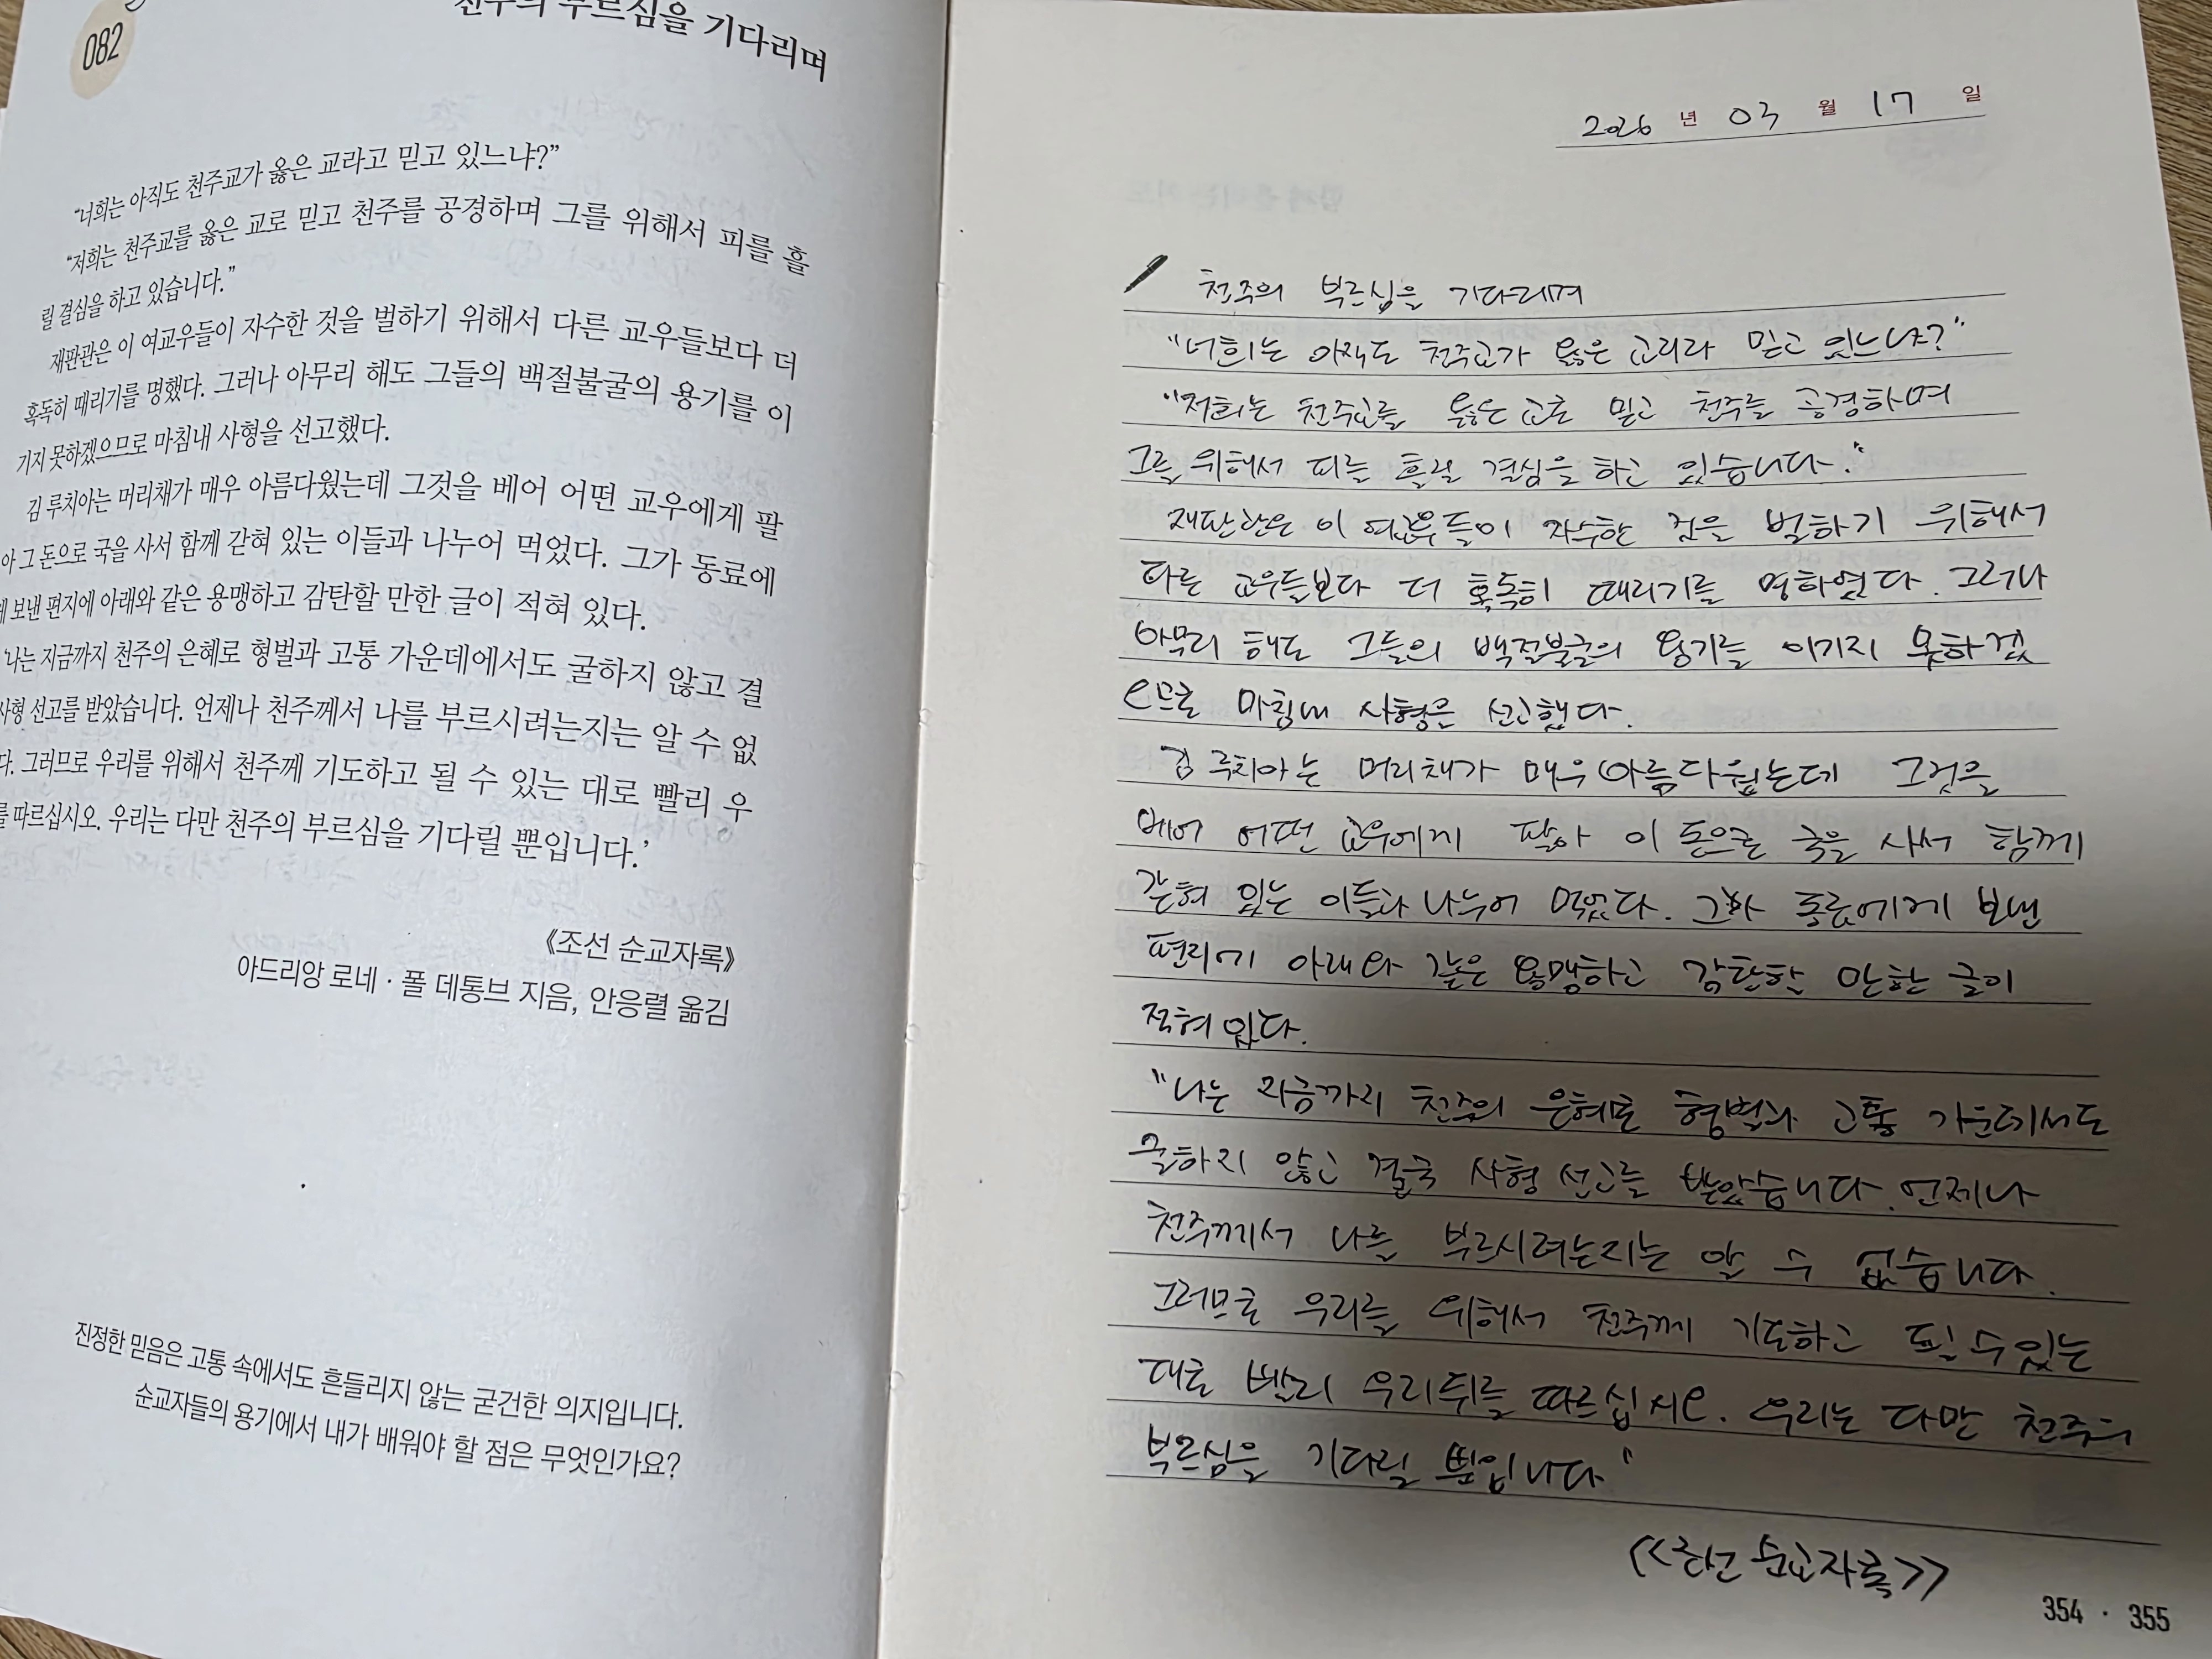 082
천주의 부르심을 기다리며
“너희는 아직도 천주교가 옳은 교라고 믿고 있느냐?”
“저희는 천주교를 옳은 교로 믿고 천주를 공경하며 그를 위해서 피를 흘
릴 결심을 하고 있습니다.”
재판관은 이 여교우들이 자수한 것을 벌하기 위해서 다른 교우들보다 더
혹독히 때리기를 명했다. 그러나 아무리 해도 그들의 백절불굴의 용기를 이
기지 못하겠으므로 마침내 사형을 선고했다.
김 루치아는 머리채가 매우 아름다웠는데 그것을 베어 어떤 교우에게 팔
아 그 돈으로 국을 사서 함께 갇혀 있는 이들과 나누어 먹었다. 그가 동료에
게 보낸 편지에 아래와 같은 용맹하고 감탄할 만한 글이 적혀 있다.
‘나는 지금까지 천주의 은혜로 형벌과 고통 가운데에서도 굴하지 않고 결
사형 선고를 받았습니다. 언제나 천주께서 나를 부르시려는지는 알 수 없
다. 그러므로 우리를 위해서 천주께 기도하고 될 수 있는 대로 빨리 우
를 따르십시오. 우리는 다만 천주의 부르심을 기다릴 뿐입니다.’
《조선 순교자록》
아드리앙 로네 · 폴 데통브 지음, 안응렬 옮김
진정한 믿음은 고통 속에서도 흔들리지 않는 굳건한 의지입니다.
순교자들의 용기에서 내가 배워야 할 점은 무엇인가요?
2026 년 03 월 17 일
천주의 부르심을 기다리며
"너희는 아직도 천주교가 옳은 교리라 믿고 있느냐?"
"저희는 천주교를 옳은 교로 믿고 천주를 공경하며
그를 위해서 피를 흘릴 결심을 하고 있습니다."
재판관은 이 여교우들이 자수한 것을 벌하기 위해서
다른 교우들보다 더 혹독히 때리기를 명하였다. 그러나
아무리 해도 그들의 백절불굴의 용기를 이기지 못하겠
으므로 마침내 사형을 선고했다.
김 루치아는 머리채가 매우 아름다웠는데 그것을
베어 어떤 교우에게 팔아 이 돈으로 국을 사서 함께
갇혀 있는 이들과 나누어 먹었다. 동료에게 보낸
편지에 아래와 같은 용맹하고 감탄할 만한 글이
적혀 있다.
"나는 지금까지 천주의 은혜로 형벌과 고통 가운데서도
굴하지 않고 결국 사형 선고를 받았습니다. 언제나
천주께서 나를 부르시려는지는 알 수 없습니다.
그러므로 우리를 위해서 천주께 기도하고 될 수 있는
대로 빨리 우리 뒤를 따르십시오. 우리는 다만 천주의
부르심을 기다릴 뿐입니다"
<<조선 순교자록>>
354 · 355